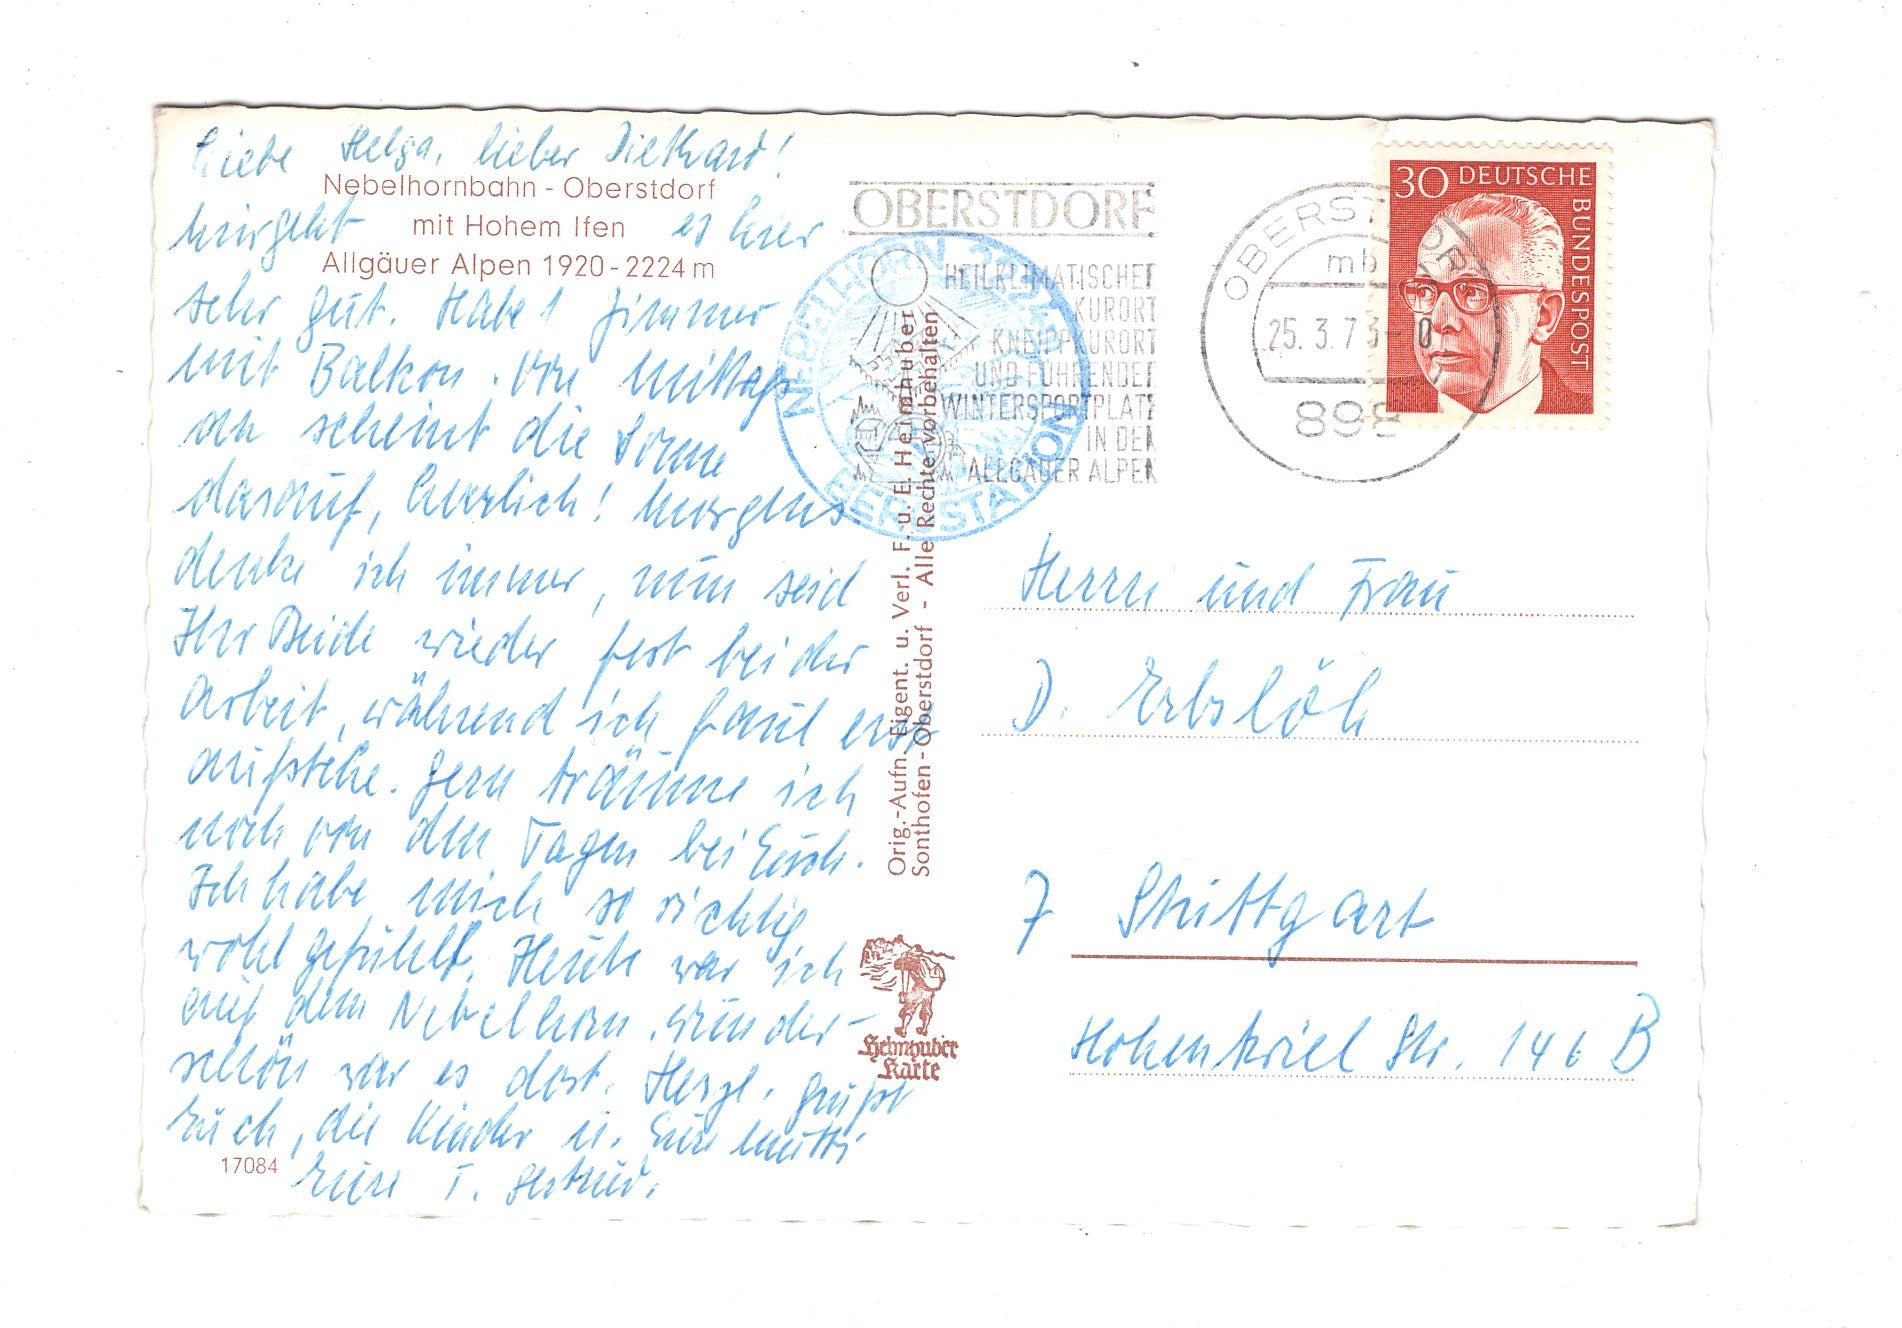 Liebe Helga, lieber Diethard!
Nebelhornbahn - Oberstdorf
mit Hohem Ifen
Allgäuer Alpen 1920-2224 m
mir geht es hier
sehr gut. Habe 1 Zimmer
mit Balkon. Von Mittags
an scheint die Sonne
darauf, herrlich! Morgens
denke ich immer, nun seid
Ihr Beide wieder fest bei der
Arbeit, während ich faul erst
aufstehe. Gern träume ich
noch von den Tagen bei Euch.
Ich habe mich so richtig
wohl gefühlt. Heute war ich
auf dem Nebelhorn. Wunder-
schön war es dort. Herzl. grüßt
Euch, die Kinder u. Eure Mutti
Eure T. Gertrud.
17084
Orig.-Aufn. Eigent. u. Verl. F. u. E. Heimhuber
Sonthofen - Oberstdorf - Alle Rechte vorbehalten
Heimhuber
Karte
OBERSTDORF
HEILKLIMATISCHER
KURORT
KNEIPPKURORT
UND FÜHRENDER
WINTERSPORTPLATZ
IN DEN
ALLGÄUER ALPEN
NEBELHORN
BERGSTATION
OBERSTDORF
mb
25.3.73-0
898
30 DEUTSCHE
BUNDESPOST
Herrn und Frau
D. Erbslöh
7 Stuttgart
Hohenkriel Str. 146 B